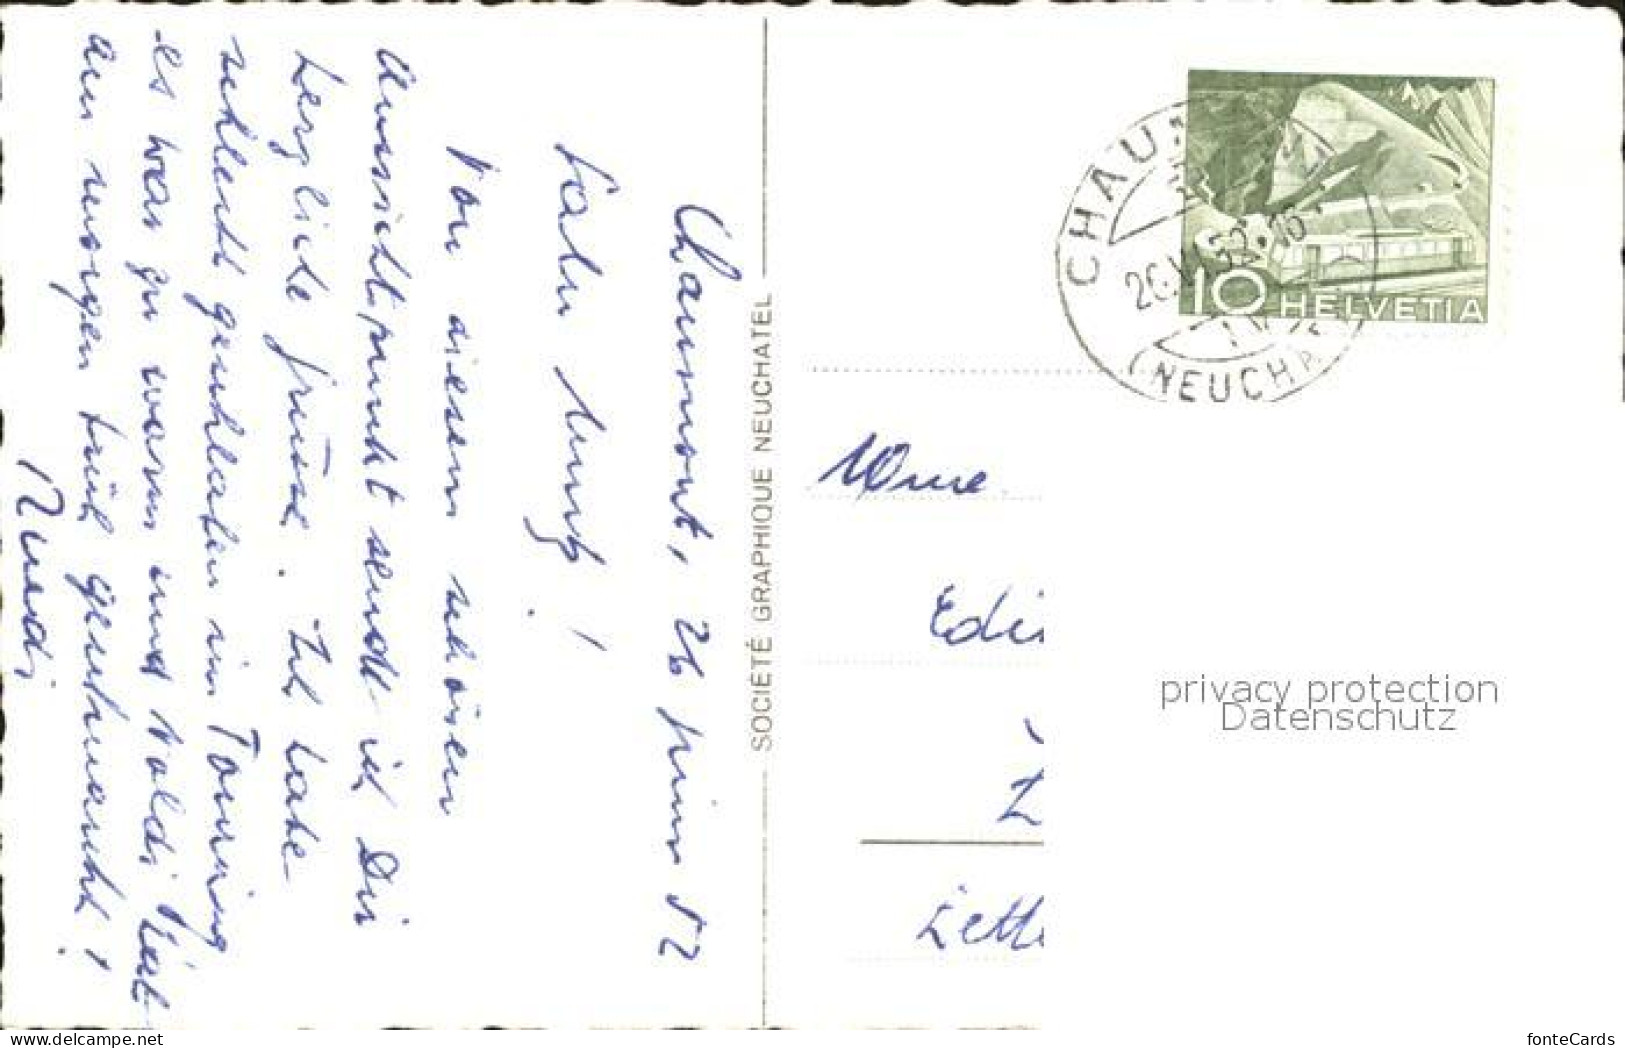 Chaumont, 26 Juni 52
Salu
Von diesem schönen
Aussichtspunkt sende ich Dir
herzliche Grüsse. Ich habe
schlecht geschlafen im Touring
es war zu warm und Noldi hat
am morgen früh geschnarcht!
Ruedi
SOCIÉTÉ GRAPHIQUE NEUCHATEL
CHAU
26.VI.52.16
NEUCHA
10 HELVETIA
Mme
Edi
Z
Zett
privacy protection
Datenschutz
www.delcampe.net
fonteCards